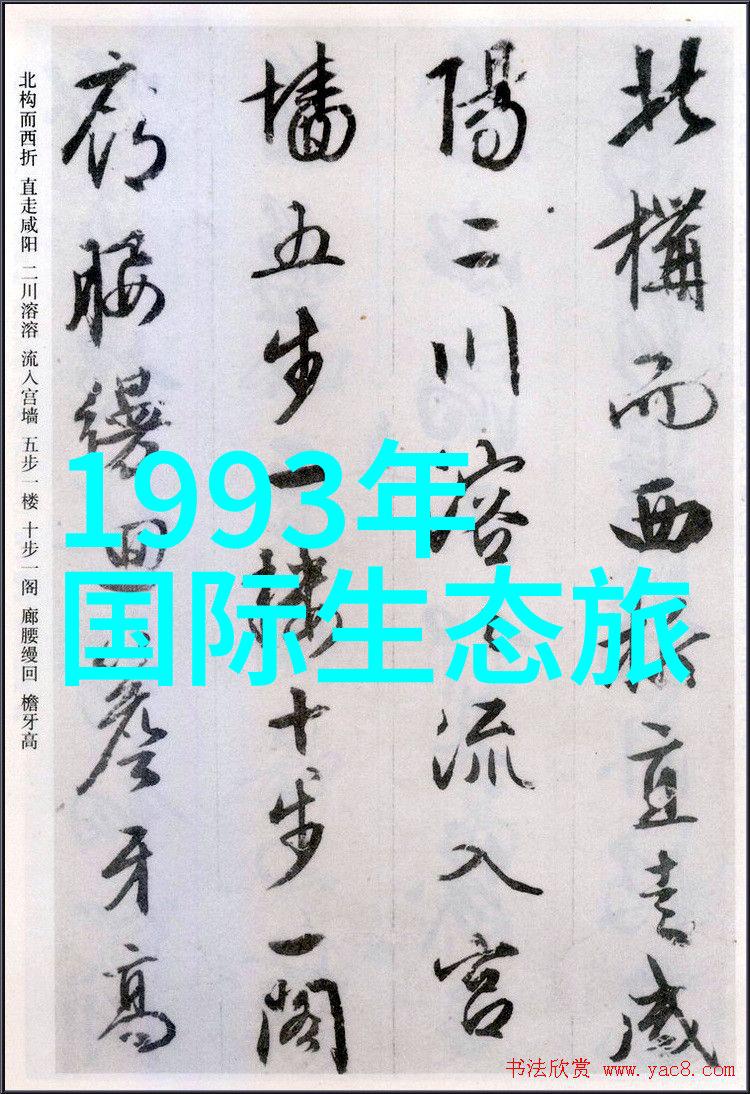 北構而西折直走咸
陽二川溶々流入宮
墻五步一樓十步一閣
廊腰縵迴簷牙高
北构而西折 直走咸阳 二川溶溶 流入宫墙 五步一楼 十步一阁 廊腰缦回 檐牙高
1993年
国际生态旅
书法欣赏 www.yac8.com